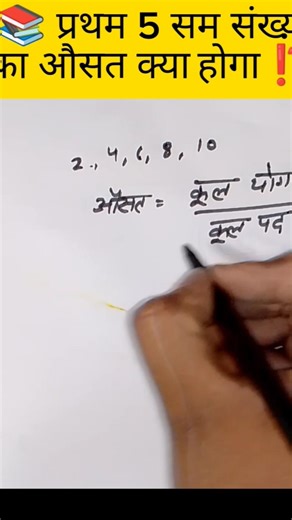 📚 प्रथम 5 सम संख्य
का औसत क्या होगा ⁉️
2, 4, 6, 8, 10
औसत = कूल योग
कूल पद